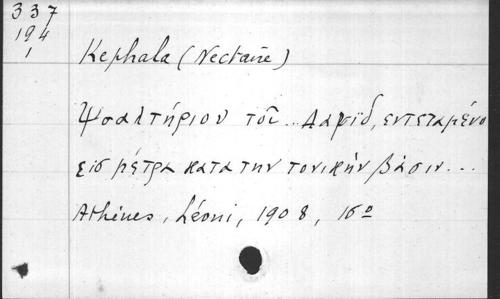 337
194
1
Kephala (Nectaire)
Ψσαλτήριον τοῦ... Δαβίδ, εντεταμένο
εισ μέτρα κατα την τονικήν βάσιν...
Athènes, Léoni, 1908, 16º